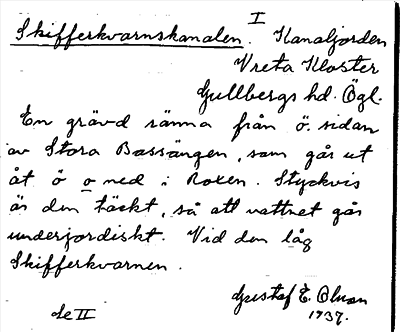 I
Skifferkvarnskanalen. Kanaljorden
Vreta Kloster
Gullbergs hd. Ögl.
En grävd ränna från ö. sidan
av Stora Bassängen, som går ut
åt ö o ned i Roxen. Styckvis
är den täckt, så att vattnet går
underjordiskt. Vid den låg
Skifferkvarnen.
Gustaf E. Olson
1937.
Se II